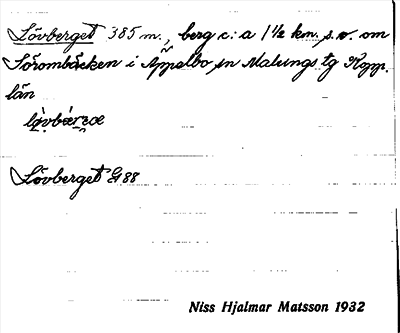 Lövberget 385 m., berg c:a 1½ km. s.v. om
Sörombäcken i Äppelbo sn Malungs tg Kopp.
län
Lövberget G 88
Niss Hjalmar Matsson 1932